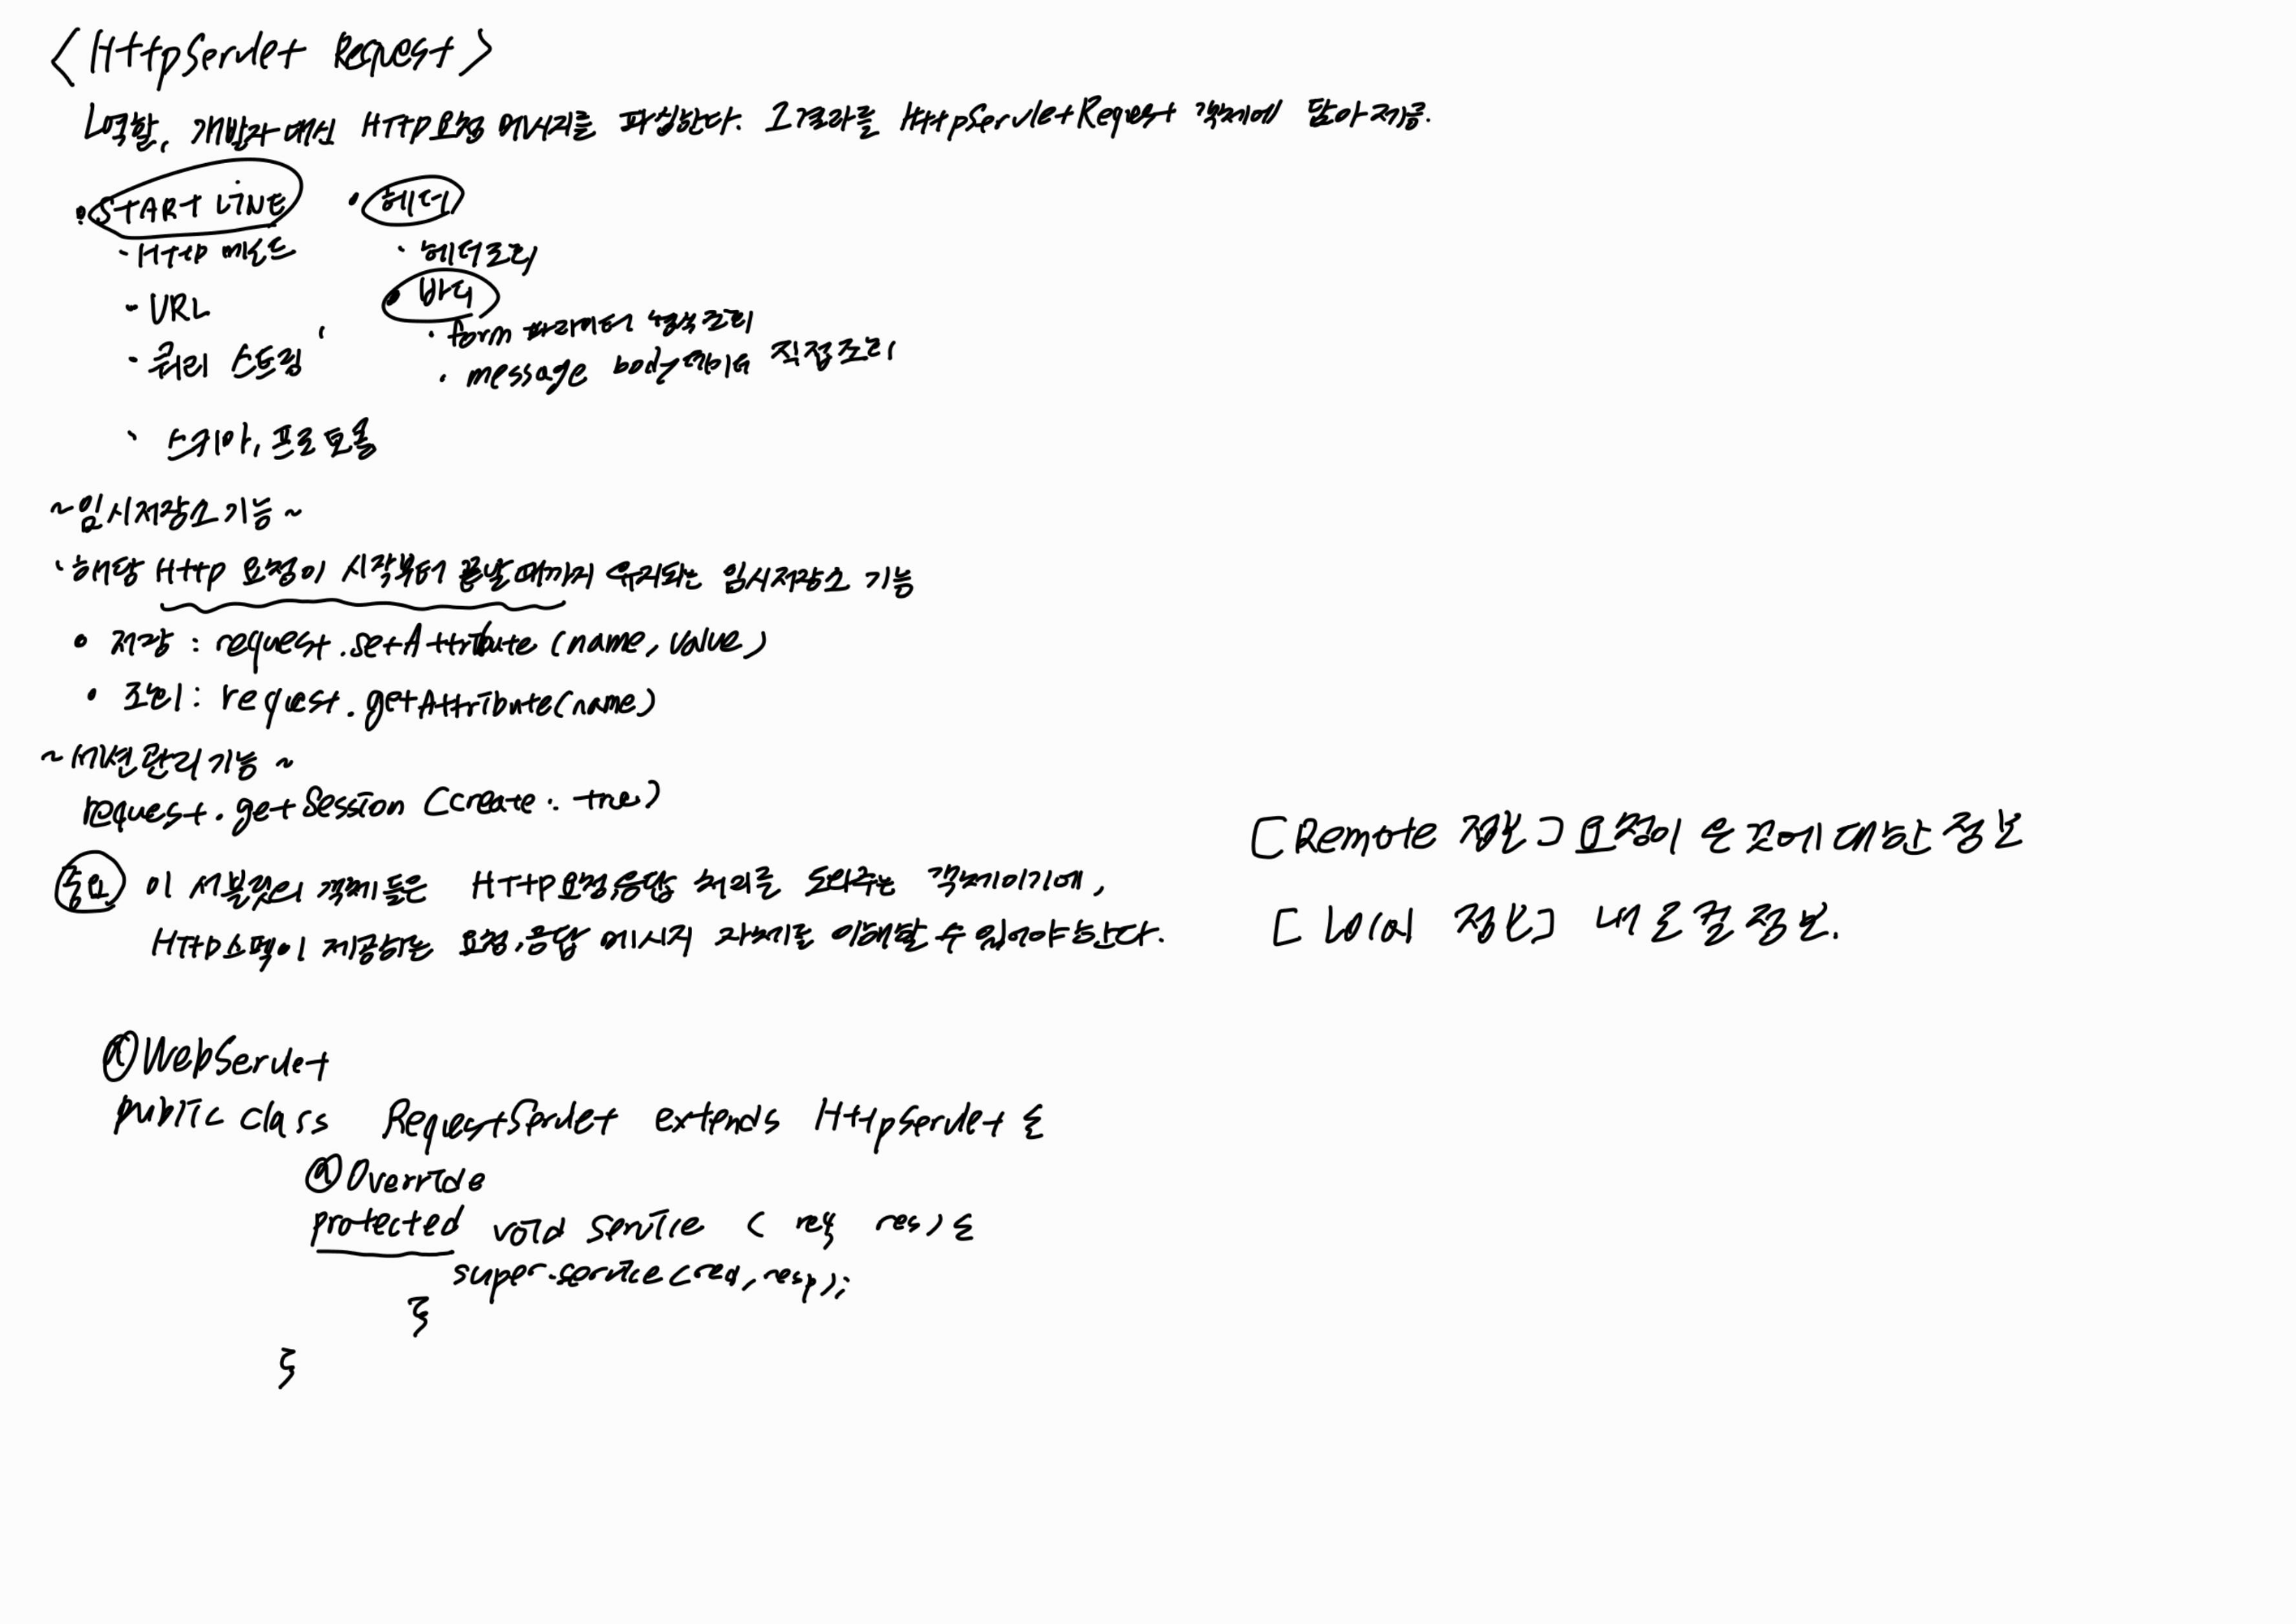 <HttpServlet Request>
ㄴ역할, 개발자 대신 HTTP 요청 메시지를 파싱한다. 그결과를 HttpServletRequest 객체에 담아 제공.
• START LINE
- Http 메소드
- URL
- 쿼리 스트링
· 스키마, 프로토콜
• 헤더
· 헤더조회
• 바디
· form 파라미터 형식 조회
· message body 데이터 직접조회
~임시저장소 기능~
· 해당 Http 요청이 시작부터 끝날 때까지 유지되는 임시저장소 기능
• 저장 : request.setAttribute (name, value)
• 조회 : request.getAttribute(name)
~세션관리 기능~
request.getSession (create: true)
중요 이 서블릿의 객체들은 HTTP요청,응답 처리를 도와주는 객체이기에,
HTTP스펙이 제공하는 요청,응답 메시지 자체를 이해할 수 있어야한다.
[Remote 정보] 요청이 온 곳에 대한 정보
[ 로컬 정보] 내 로컬 정보.
@WebServlet
public class RequestServlet extends HttpServlet {
@Override
protected void service ( req res) {
super.service(req, resp);
}
}